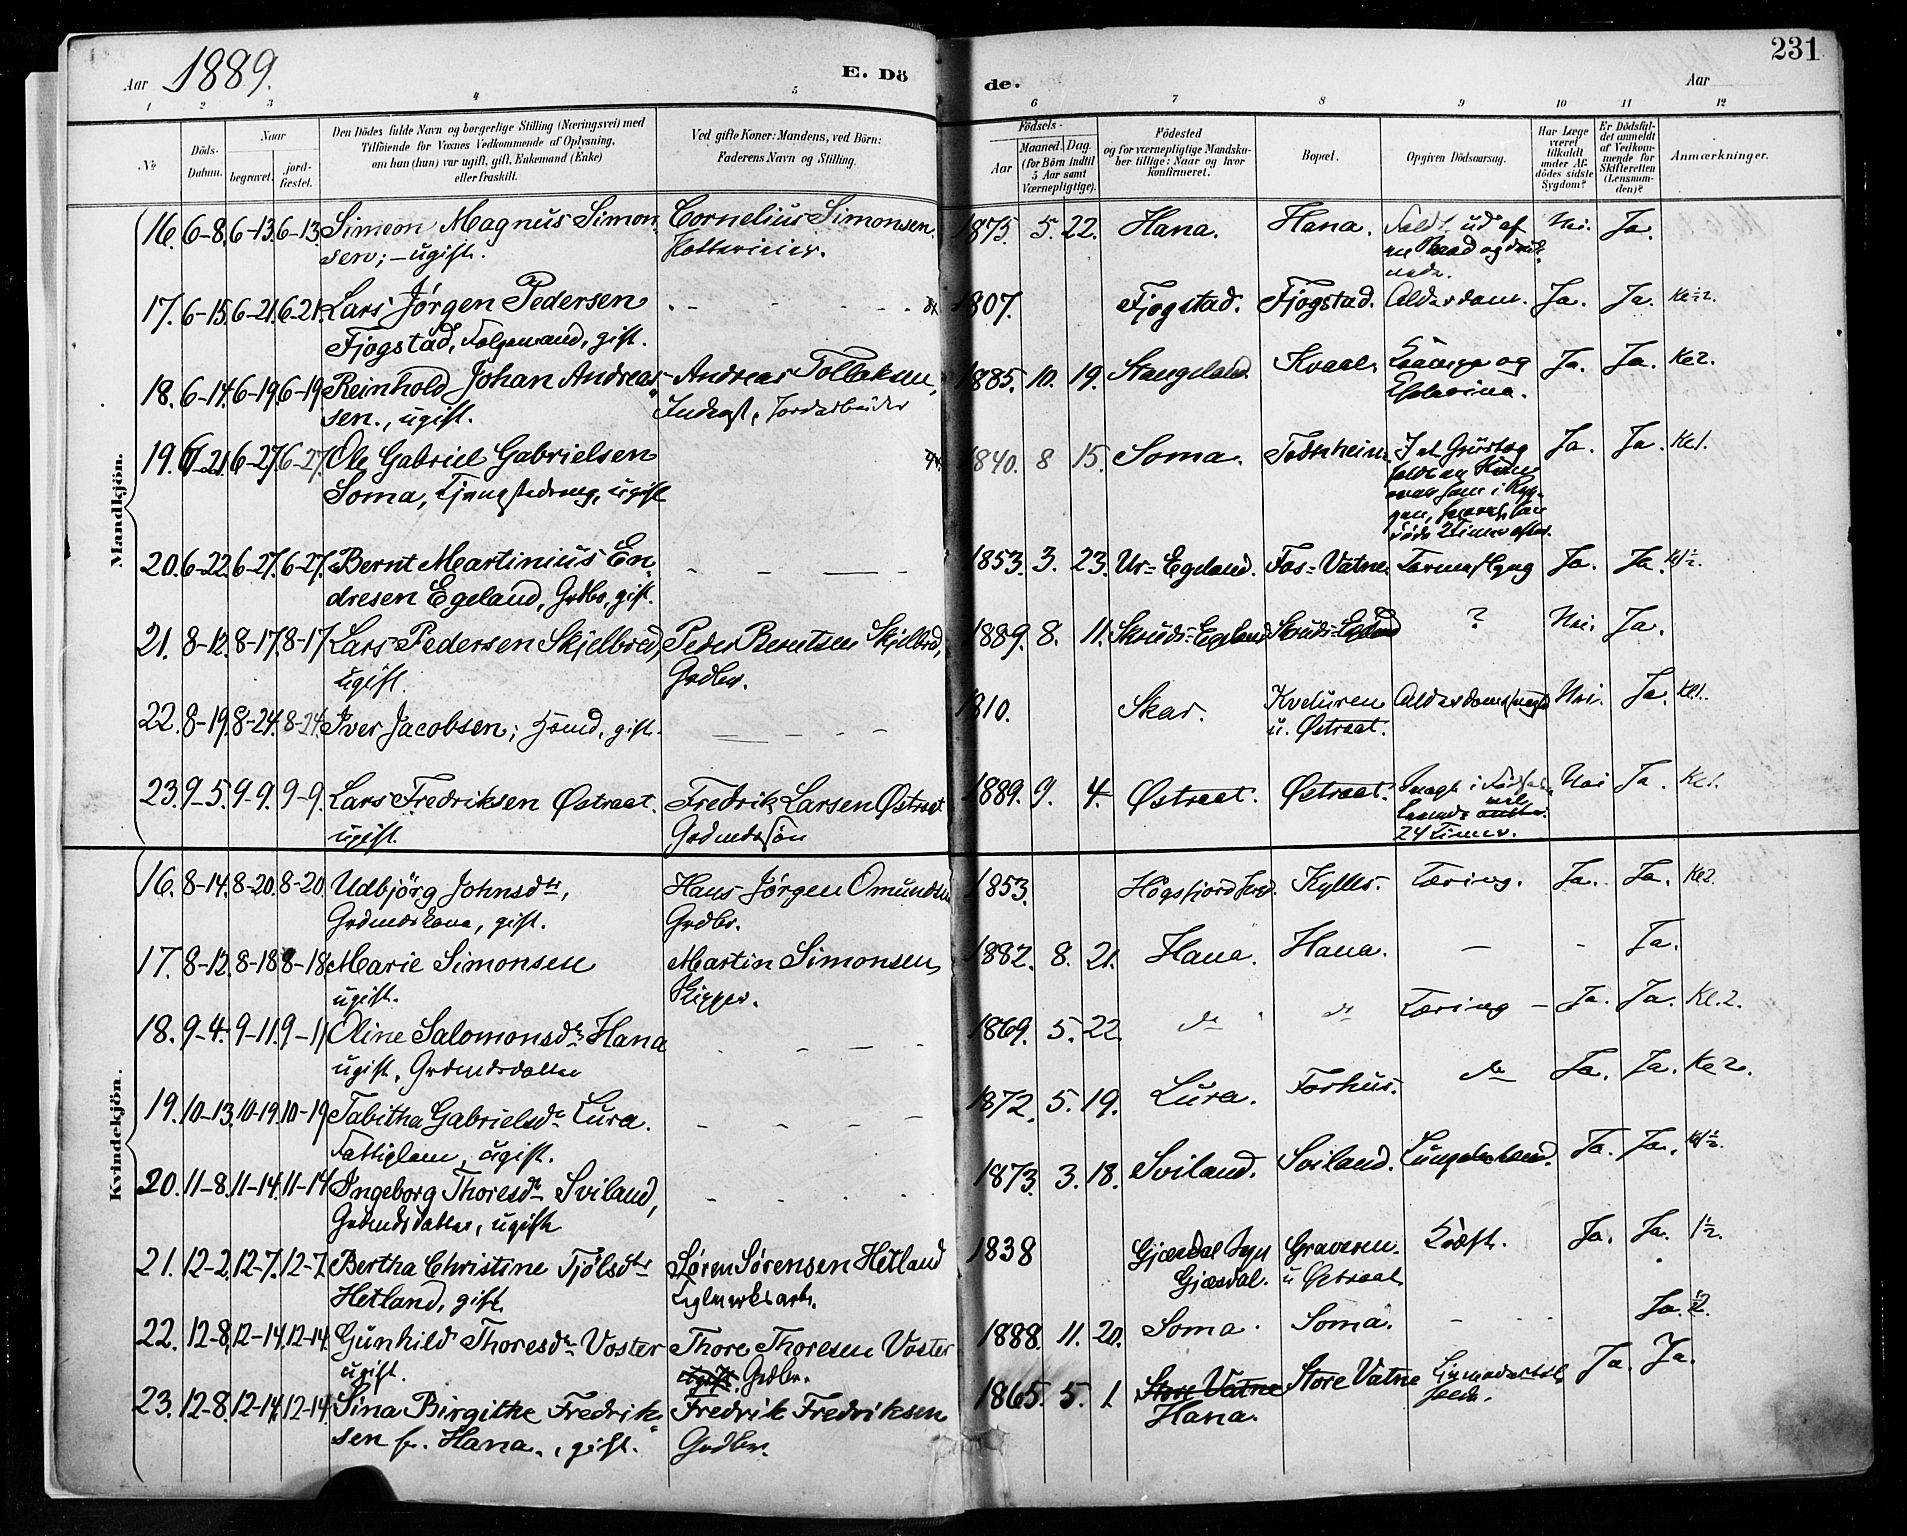 Aar 1889. E. Dö
de. Aar 231
1 2 3 4 5 6 7 8 9 10 11 12
№ Döds-Datum. Naar begravet. jord-fæstet.
Den Dödes fulde Navn og borgerlige Stilling (Næringsvei) med
Tilföiende for Voxnes Vedkommende af Oplysning,
om han (hun) var ugift, gift, Enkemand (Enke)
eller fraskilt.
Ved gifte Koner: Mandens, ved Börn:
Faderens Navn og Stilling.
Födsels-
Aar Maaned. Dag.
(for Börn indtil
5 Aar samt
Værnepligtige).
Födested
og for værnepligtige Mandska-
ber tillige: Naar og hvor
konfirmeret.
Bopæl.
Opgiven Dödsaarsag.
Har Læge
været
tilkaldt
under Af-
dödes sidste
Sygdom?
Er Dödsfal-
det anmeldt
af Vedkom-
mende for
Skifteretten
(Lensman-
den)?
Anmærkninger.
Mandkjön.
16. 6-8. 6-13. 6-13. Simeon Magnus Simon- Cornelius Simonsen. 1875. 5. 22. Hana. Hana. Faldt ud af Nei. Ja.
sen; -ugift. og druk-
nede.
17. 6-15. 6-21. 6-21. Lars Jörgen Pedersen - - - - 1807. Fjogstad. Fjogstad. Alderdom. Ja. Ja.
Fjogstad, Folgemand, gift.
18. 6-14. 6-19. 6-19. Reinhold Johan Andreas- Andreas Tollaksen, 1885. 10. 19. Stangeland. Kvaal. og Ja. Ja. Kl 2.
sen., ugift. Inderst, Jordarbeider
19. 6-21. 6-27. 6-27. Ole Gabriel Gabrielsen 1840. 8 15. Soma. I et Ja. Ja. Kl 1.
Soma, ugift
i Ryg-
gen,
döde 2 Timer efter.
20. 6-22. 6-27. 6-27. Bernt Martinius En- - - - - 1853. 3. 23. Ur-Egeland. Fos-Vatne. Ja. Ja. Kl 1/2.
dresen Egeland, Grdbr, gift.
21. 8-12. 8-17. 8-17. Lars Pedersen Skjelbred, Peder Berntsen Skjelbred, 1889. 8. 11. Skruds-Egeland Skruds-Egeland ? Nei. Ja.
ugift. Grdbr.
22. 8-19. 8-24. 8-24. Iver Jacobsen; gift. - - - - 1810. Skar. Kveluren Nei. Ja. Kl 1.
u. Østraat.
23. 9-5. 9-9. 9-9. Lars Fredriksen Østraat. Fredrik Larsen Østraat 1889. 9. 4. Østraat. Østraat. Svagt i Nei Ja. Kl 1.
ugift. Grdmdssön
24 Timer.
Kvindekjön.
16. 8-14. 8-20. 8-20. Udbjörg Johnsdtr, Hans Jörgen Omundsen 1853. Kylles. Tæring. Ja. Ja. Kl 2.
Grdmdskone, gift. Grdbr.
17. 8-12. 8-18 8-18 Marie Simonsen Martin Simonsen, 1882. 8. 21. Hana. Hana. - - Ja.
ugift. Skipper.
18. 9-4. 9-11. 9-11 Oline Salomonsdtr Hana - - - 1869. 5. 22. do do Tæring - Ja. Ja. Kl. 2.
ugift, Grdmdsdatter
19. 10-13. 10-19. 10-19 Tabitha Gabrielsdtr Lura. - - - - 1872. 5. 19. Lura. Forhus. do Ja. Ja. Kl 2.
Fattiglem, ugift.
20. 11-8. 11-14. 11-14 Ingeborg Thoresdtr Sviland, - - - - 1873. 3. 18. Sviland. Sviland. Ja. Ja. Kl 1/2.
Grdmdsdatter, ugift
21. 12-2. 12-7. 12-7. Bertha Christine Tjölsdtr Sören Sörensen Hetland 1838 Graveren. Kræft. Ja. Ja. 1/2.
Hetland, gift. Teglverksarb. Gjæsdal. u Østraat
22. 12-8. 12-14. 12-14. Gunhild Thoresdtr Voster Thore Thoresen Voster 1888. 11. 20. Soma. Soma. - - Ja.
ugift. ugift. Grdbr.
23. 12-8. 12-14. 12-14 Sina Birgithe Fredrik- Fredrik Fredriksen 1865. 5. 1. Store Vatne Store Vatne Ja. Ja.
sen f. Hana., gift. Grdbr. Hana.